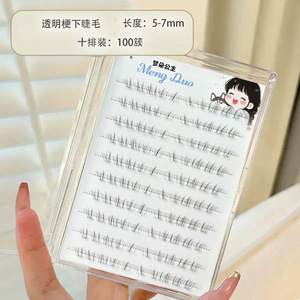 透明梗下睫毛 长度：5-7mm
十排装：100簇
梦朵公主
Meng Duo